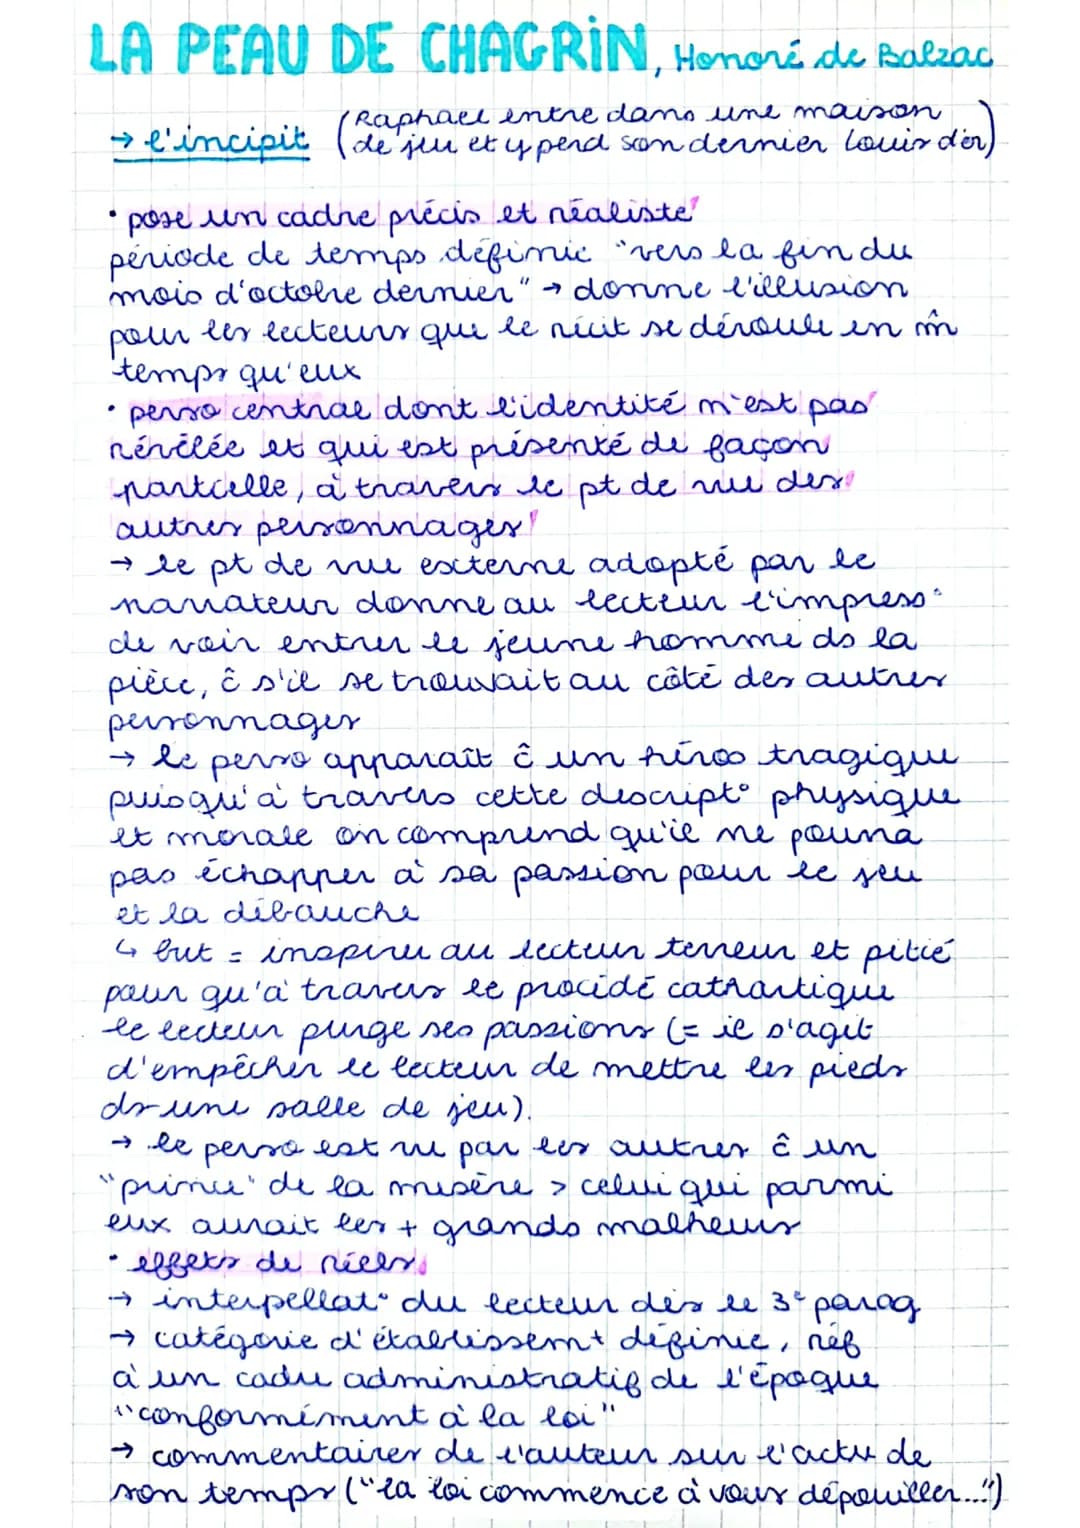 LA PEAU DE CHAGRiN, Honoré de Balzac
→ l'incipit (Raphael entre dans une maison
de jeu et y perd son dernier Louis d'or)
• pose un cadre précis et réaliste
période de temps définie "vers la fin du
mois d'octobre dernier" → donne l'illusion
pour les lecteurs que le récit se déroule en m̂
temps qu'eux
• perso central dont l'identité n'est pas
révélée et qui est présenté de façon
partielle, à travers le pt de vue des
autres personnages
→ le pt de vue externe adopté par le
narrateur donne au lecteur l'impress°
de voir entrer le jeune homme ds la
pièce, ĉ s'il se trouvait au côté des autres
personnages
→ le perso apparaît ĉ un héros tragique
puisqu'à travers cette descript° physique
et morale on comprend qu'il ne pourra
pas échapper à sa passion pour le jeu
et la débauche
↳ but = inspirer au lecteur terreur et pitié
pour qu'à travers le procédé cathartique
le lecteur purge ses passions (= il s'agit
d'empêcher le lecteur de mettre les pieds
ds une salle de jeu).
→ le perso est vu par les autres ĉ un
"prince" de la misère > celui qui parmi
eux aurait les + grands malheurs
• effets de réels
→ interpellat° du lecteur dès le 3e parag
→ catégorie d'établissemt définie, réf
à un cadre administratif de l'époque
"conformément à la loi"
→ commentaires de l'auteur sur l'actu de
son temps ("la loi commence à vous dépouiller...")